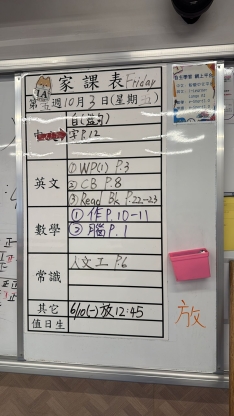 家課表 Friday
1A
第五週10月3日(星期五)
字P.12
英文
① WP(1) P.3
② CB P.8
③ Read Bk P.22-23
數學
① 作P.10-11
② 腦P.1
常識
人文工 P.6
其它
6/10(一)放12:45
值日生
放